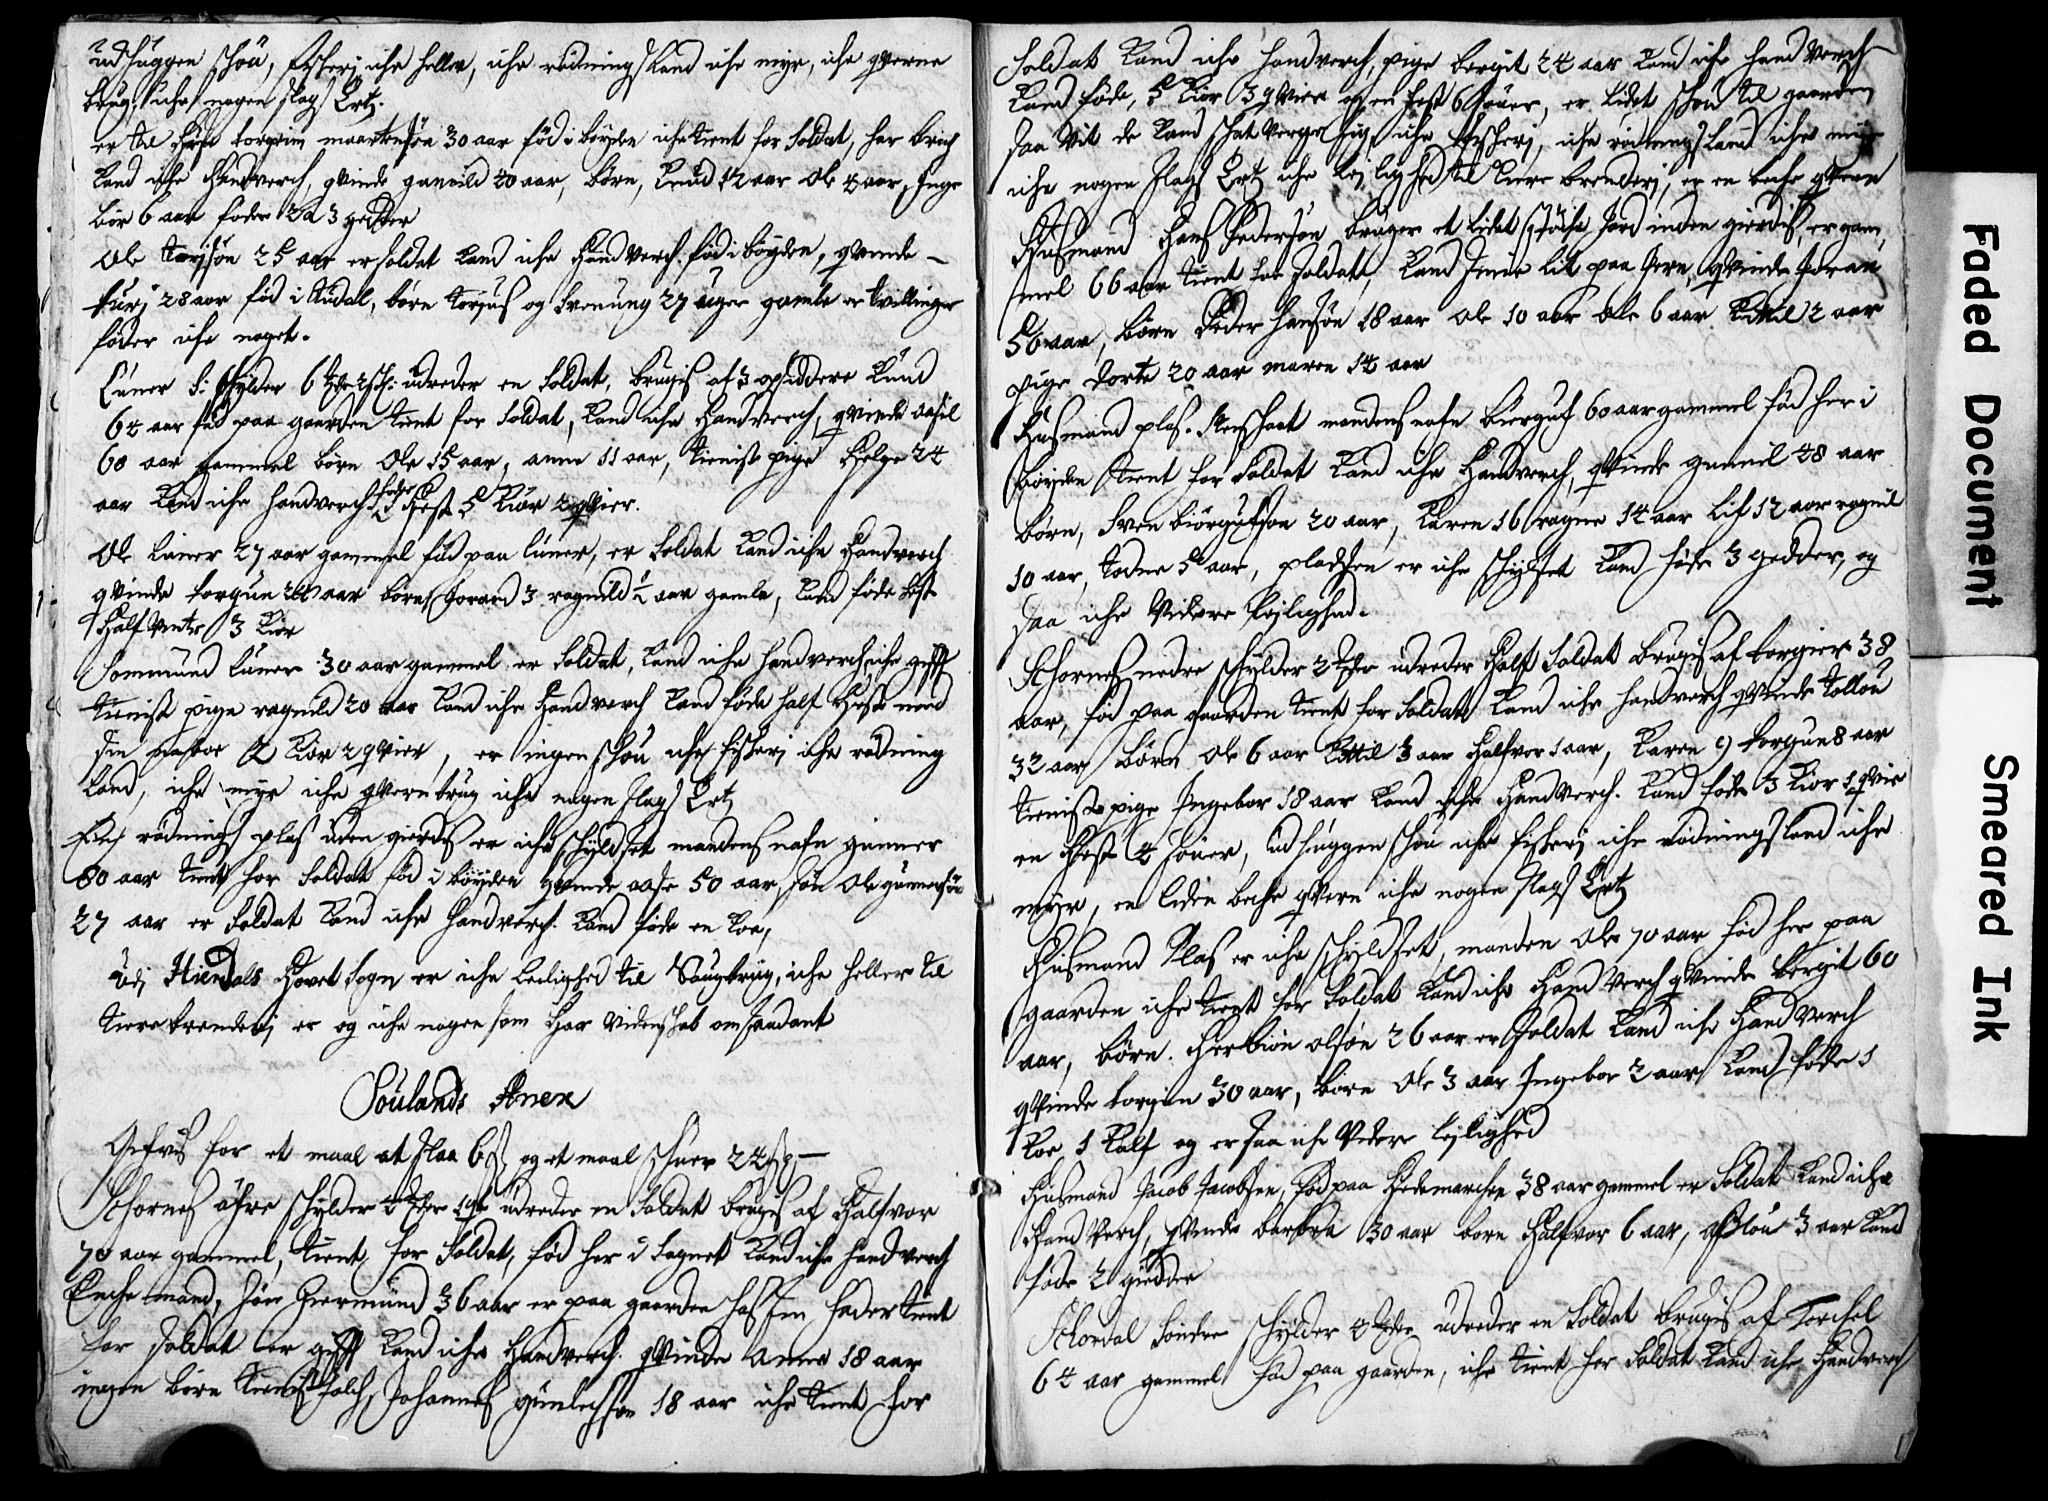 udhuggen schou, fischerj iche heller, iche rødnings Land iche myr, iche qverne
brug, iche nogen slags Ertz.
er til huuse torgrim maartensøn 30 aar fød i bøyden iche tient for Soldat, har brich
Kand iche Handverch, qvinde gunnild 40 aar, børn, Knud 12 aar Ole 4 aar, Inge
bor 6 aar føder 2 a 3 gedder
Ole 25 aar er soldat Kand iche Handverch fød i bøyden, qvinde
turj 28 aar fød i tudal, børn torjus og Svenung 27 uger gamle er tvillinger
føder iche noget.
Luner S: schylder 6 udreder en Soldat, brugis af 3 opsiddere Knud
64 aar fød paa gaarden tient for Soldat, Kand iche Handverch, qvinde
60 aar gammel børn Ole 15 aar, anne 11 aar, tieniste pige Helge 24
aar Kand iche handverch føder 1 Hest 5 Kiør 2 qvier.
Ole Luner 27 aar gammel fød paa luner, er Soldat Kand iche Handverch
qvinde torgun 24 aar børn Joran 3 ragnild 1/2 aar gamle, Kand føde Hest
half vinter 3 Kiør
Sommund Luner 30 aar gammel er Soldat, Kand iche handverch, iche gifft
tieniste pige ragnild 20 aar Kand iche Handverch Kand føde half Hest med
sin naboe 2 Kiør 2 qvier, er ingen schou iche fischerj iche rødning
Land, iche myr iche qvernbrug iche nogen slags Ertz
rødnings plas uden gierdes er iche schyldset mandens nafn gunner
80 aar tient for Soldat fød i bøyden qvinde aase 50 aar, søn Ole gunnersøn
27 aar er Soldat Kand iche Handverch. Kand føde en Koe,
Udj Hierdals Hovet Sogn er iche beilighed til Saugbrug, iche heller til
tierebrenderj er og iche nogen som Har videnschab om saadant
Soulands Anex
Gifvis for et maal at slaa 6 og et maal schuer 24
Schornes øfre schylder udreder en Soldat brugis af Halfvor
70 aar gammel, tient for Soldat, fød her i Sognet Kand iche Handverch
Enche mand, søn Giermund 36 aar er paa gaarden hos sin fader tient
for Soldat er gifft Kand iche Handverch. qvinde Anne 18 aar
ingen børn tieniste folch, Johannes gunlechsøn 18 aar iche tient for
Soldat Kand iche handverch, pige bergit 24 aar Kand iche hand Verch
Kand føde, 5 Kiør 3 qvier og en Hest 6 souer, er Lidet schou til gaarden
saa vit de Kand schat Verge sig iche fischerj, iche rødnings Land iche myr
iche nogen slags Ertz iche lejlighed til tiere brenderj, er en beche qvern
Husmand Hans Pedersøn bruger et Lidet støche Jord inden gierdes, er gam,
mel 66 aar tient for Soldat, Kand smie lit paa Jern, qvinde Joran
56 aar, børn Peder Hansøn 18 aar Ole 10 aar Ole 6 aar Kittil 2 aar
pige dorte 20 aar maren 14 aar
Husmand plas. mandens nafn biørguf 60 aar gammel fød her i
bøyden tient for Soldat Kand iche Handverch, qvinde gunnil 48 aar
børn, Sven biørgufsøn 20 aar, Karen 16 ragne 14 aar Lif 12 aar ragnil
10 aar, todne 5 aar, pladsen er iche schyldset Kand føde 3 gedder, og
saa iche Videre lejlighed.
Schornes nedre schylder udreder Half Soldat brugis af torgier 38
aar, fød paa gaarden tient for Soldat Kand iche handverch qvinde tollou
32 aar børn Ole 6 aar Kittil 3 aar Halfvor 1 aar, Karen 9 torgun 8 aar
tieniste pige Ingebor 18 aar Kand iche Handverch. Kand føde 3 Kiør 1 qvie
en Hest 4 souer, udhuggen schou iche fischerj iche rødningsland iche
myr, en liden beche qvern iche nogen slags Ertz
Husmand Plas er iche schyldset, manden Ole 70 aar fød her paa
gaarden iche tient for Soldat Kand iche Hand Verch qvinde bergit 60
aar, børn. Herbiøn olsøn 26 aar er Soldat Kand iche Handverch
qvinde torgun 30 aar, børn Ole 3 aar Ingebor 2 aar Kand føde 1
Koe, 1 Kalf og er saa iche Videre lejlighed
Husmand Jacob Jacobsen, fød paa Hedemarchen 38 aar gammel er Soldat Kand iche
Hand Verch, qvinde barbra 30 aar børn Halfvor 6 aar, aslou 3 aar Kand
føde 2 giedder
Schordal Søndre schylder 4 udreder en Soldat brugis af Torchel
64 aar gammel fød paa gaarden, iche tient for Soldat Kand iche Handverch
Faded Document
Smeared Ink